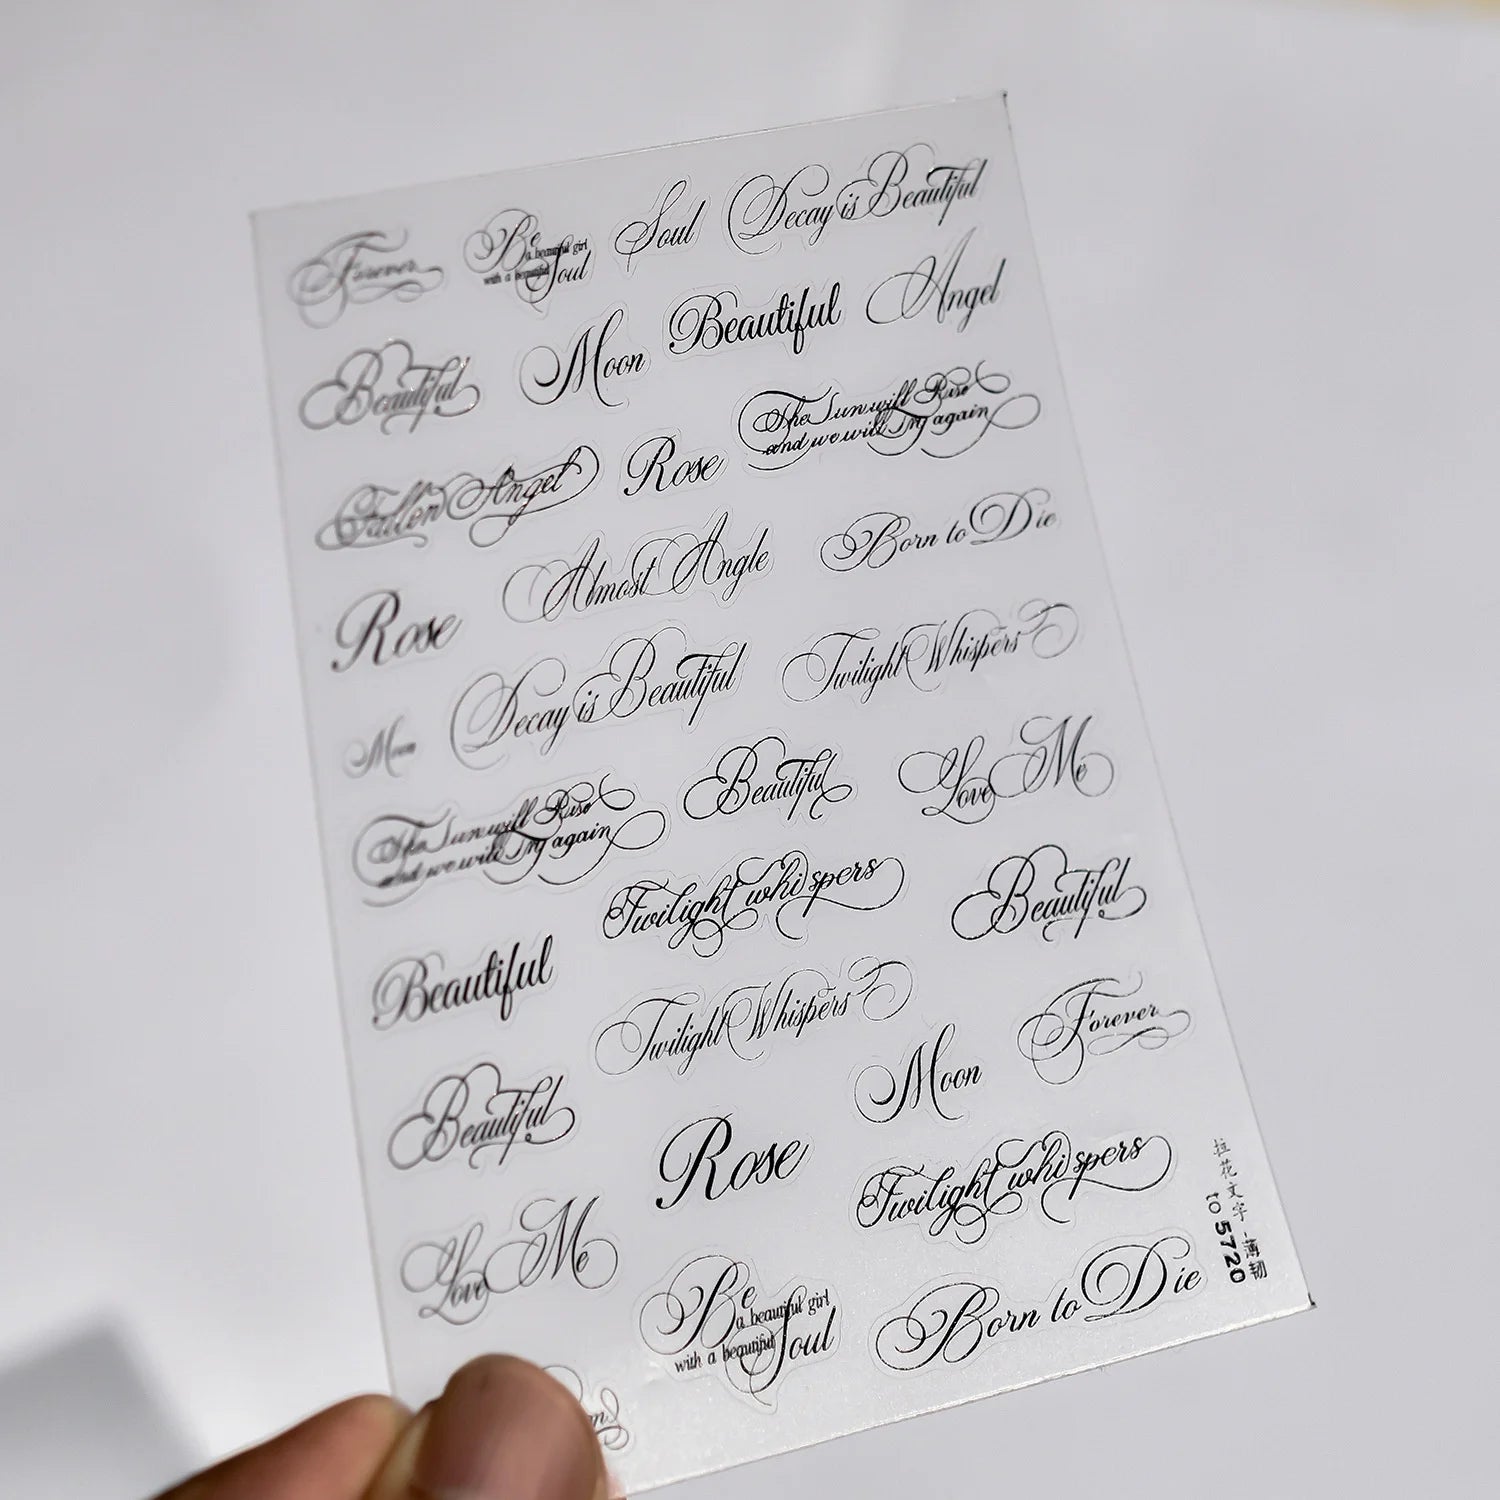 Forever
Be
a beautiful girl
with a beautiful
Soul
Soul
Decay is Beautiful
Beautiful
Moon
Beautiful
Angel
Fallen Angel
Rose
The Sun will Rise
and we will Try again
Rose
Almost Angle
Born to Die
Moon
Decay is Beautiful
Twilight Whispers
The Sun will Rise
and we will Try again
Beautiful
Love Me
Beautiful
Twilight whispers
Beautiful
Beautiful
Twilight Whispers
Moon
Forever
Love Me
Rose
Twilight whispers
Be
a beautiful girl
with a beautiful
Soul
Born to Die
拉花文字-薄韧
to 5720